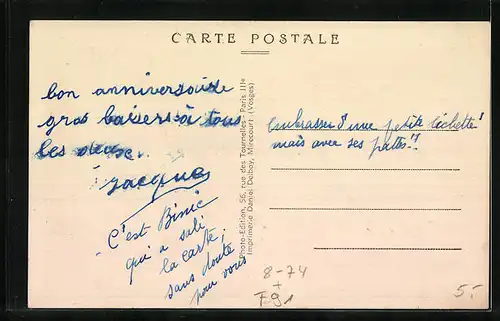 CARTE POSTALE
bon anniversaire
gros baisers à tous
les deux.
Jacques
- C'est Binic
qui a sali
la carte.
sans doute
pour vous
Photo-Edition, 56, rue des Tournelles - Paris IIIe
Imprimerie Daniel Delboy, Mirecourt (Vosges)
embrasser d'une petite léchette!
mais avec ses pattes!!
8-74
+
F91
5.-